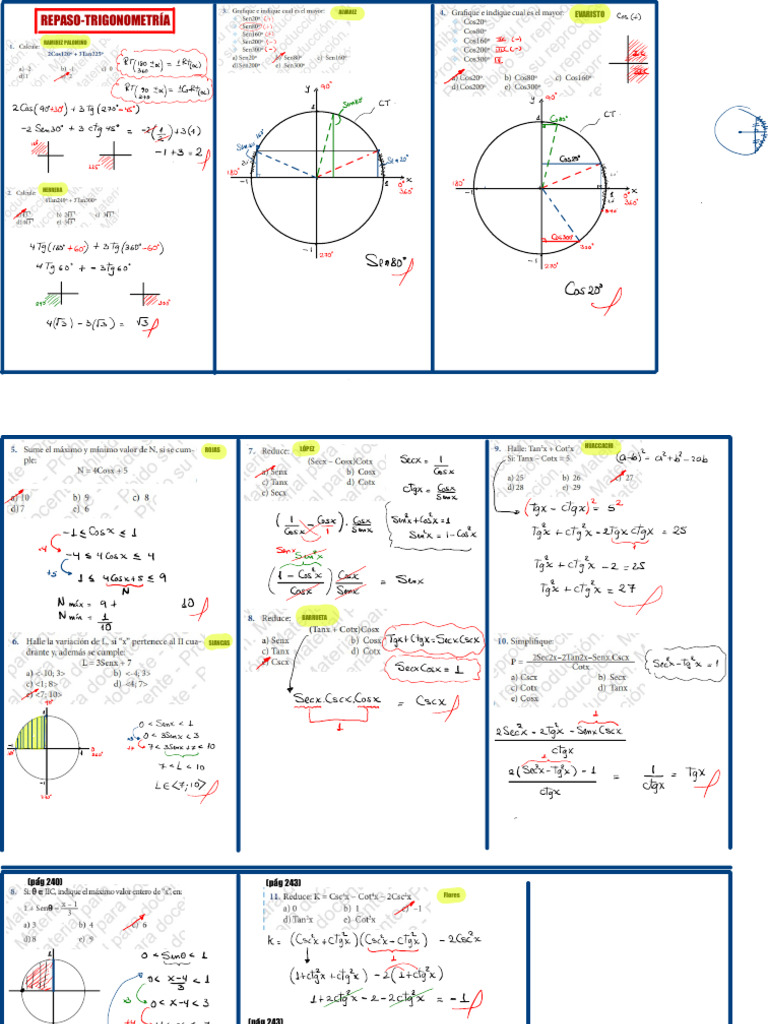 REPASO-TRIGONOMETRÍA
1. Calcule:
2Cos120º + 3Tan225º
a) -2 b) -1 c) 0
d) 1 e) 2
RT(180 ±α) = ±RT(α)
360
RT(90 ±α) = ±Co-RT(α)
270
2Cos(90°+30°) + 3Tg(270°-45°)
-2Sen30° + 3ctg45° = -2(1/2)+3(1)
-1+3 = 2
2. Calcule: HERRERA
4Tan240º + 3Tan300º
4Tg(180°+60°) + 3Tg(360°-60°)
4Tg60° + -3Tg60°
4(√3) - 3(√3) = √3
3. Grafique e indique cual es el mayor:
Sen20º (+)
Sen80º (+)
Sen160º (+)
Sen200º (-)
Sen300º (-)
a) Sen20º b) Sen80º c) Sen160º
d) Sen200º e) Sen300º
y 90°
CT
Sen80°
Sen20°
180° -1
x
0°
360°
-1
270°
Sen80°
4. Grafique e indique cual es el mayor: EVARISTO
Cos20º
Cos80º
Cos160º
Cos200º
Cos300º
a) Cos20º b) Cos80º c) Cos160º
d) Cos200º e) Cos300º
Cos (+)
90°
CT
Cos80°
Cos20°
180° -1
0°
360°
Cos300°
-1
270°
Cos20°
5. Sume el máximo y mínimo valor de N, si se cum- ROJAS
ple:
N = 4Cosx + 5
a) 10 b) 9 c) 8
d) 7 e) 6
-1 ≤ Cosx ≤ 1
·4
-4 ≤ 4Cosx ≤ 4
+5
1 ≤ 4Cosx+5 ≤ 9
N
N máx = 9 +
N mín = 1
10
10
6. Halle la variación de L, si "x" pertenece al II cua-
drante y, además se cumple:
L = 3Senx + 7
a) <-10; 3> b) <-4; 3>
c) <1; 8> d) <4; 7>
e) <7; 10>
0 < Senx < 1
0 < 3Senx < 3
7 < 3Senx+7 < 10
7 < L < 10
L∈<7;10>
7. Reduce: LÓPEZ
(Secx – Cosx)Cotx
a) Senx b) Cosx
c) Tanx d) Cotx
e) Secx
Secx = 1/Cosx
ctgx = Cosx/Senx
(1/Cosx - Cosx/1) · Cosx/Senx
Sen²x+Cos²x=1
Sen²x = 1-Cos²x
Senx
Sen²x
((1-Cos²x)/Cosx)(Cosx/Senx) = Senx
8. Reduce:
(Tanx + Cotx)Cosx
a) Senx b) Cosx
c) Tanx d) Cotx
e) Cscx
Tgx+Ctgx=SecxCscx
SecxCosx = 1
Secx.Cscx.Cosx = Cscx
1
9. Halle: Tan²x + Cot²x
Si: Tanx – Cotx = 5
a) 25 b) 26 c) 27
d) 28 e) 29
(a-b)² = a²+b²-2ab
(Tgx - ctgx)² = 5²
Tg²x + ctg²x - 2Tgx ctgx = 25
1
Tg²x + ctg²x - 2 = 25
Tg²x + ctg²x = 27
10. Simplifique:
P = 2Sec2x–2Tan2x–Senx.Cscx
Cotx
a) Cscx b) Secx
c) Cotx d) Tanx
e) Cosx
Sec²x-Tg²x=1
1
2Sec²x - 2Tg²x - SenxCscx
ctgx
1
2(Sec²x-Tg²x) - 1
ctgx
= 1/ctgx = Tgx
(pág 240)
8. Si: θ ∈ IIC, indique el máximo valor entero de "x", en:
1 + Senθ = x – 1
3
a) 3 b) 4 c) 6
d) 8 e) 9
0 < Senθ < 1
0 < x-4/3 < 1
·3
0 < x-4 < 3
+4
(pág 243)
11. Reduce: K = Csc⁴x – Cot⁴x – 2Csc²x Flores
a) 0 b) 1 c) –1
d) Tan²x e) Cot²x
K = (Csc²x+ctg²x)(Csc²x-ctg²x) - 2Csc²x
1
(1+ctg²x+ctg²x) - 2(1+ctg²x)
1+2ctg²x-2-2ctg²x = -1
(pág 243)